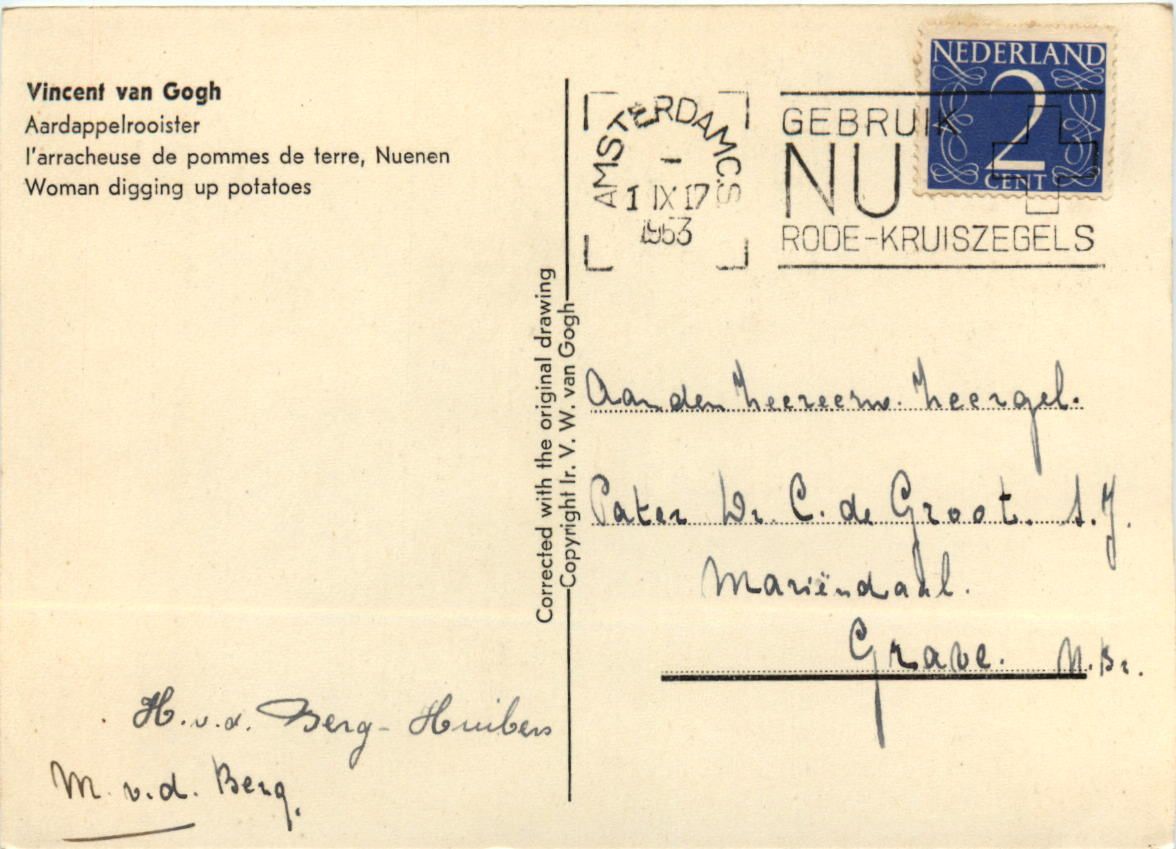 Vincent van Gogh
Aardappelrooister
l'arracheuse de pommes de terre, Nuenen
Woman digging up potatoes
NEDERLAND
2
CENT
AMSTERDAM C.S
1 IX 17
1953
GEBRUIK
NU
RODE-KRUISZEGELS
Corrected with the original drawing
Copyright Ir. V. W. van Gogh
Aan den Zeereerw. Zeergel.
Pater Dr. C. de Groot. S.J.
Mariëndaal.
Grave. N.Br.
H. v. d. Berg-Huibers
M. v. d. Berg.